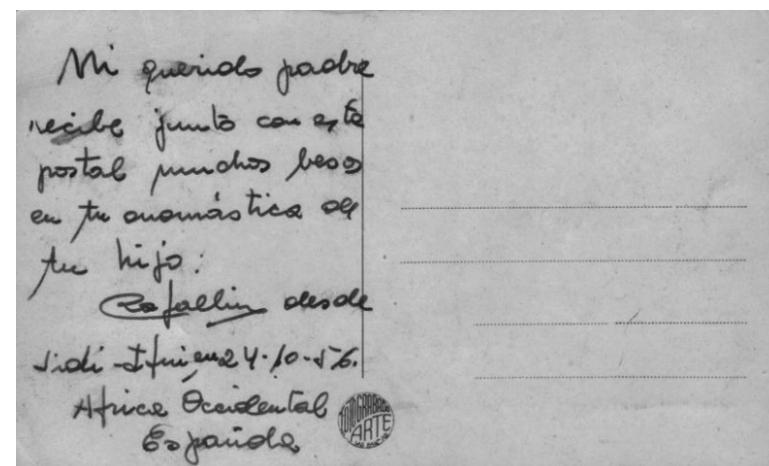 Mi querido padre
recibe junto con esta
postal muchos besos
en tu onomástica de
tu hijo:
Rafallin desde
Sidi-Ifni, en 24-10-56.
Africa Occidental
Española
FOTOGRABADO
ARTE